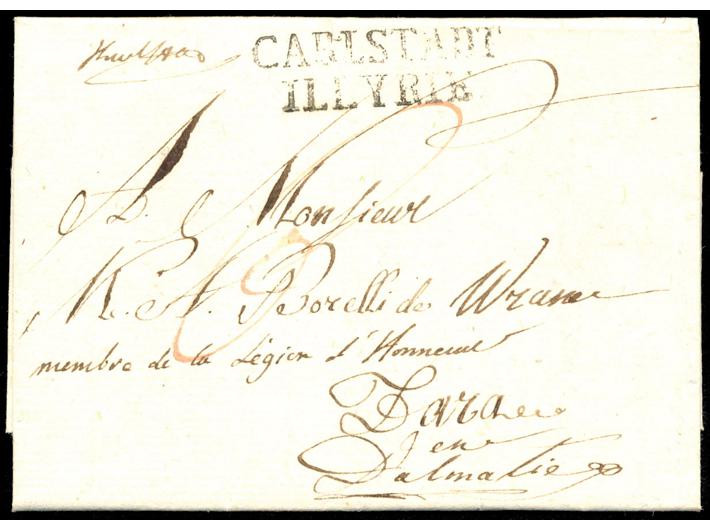 CARLSTADT
ILLYRIE
A. Monsieur
Borelli de Wrana
membre de la Légion d'Honneur
Zara
en
Dalmatie